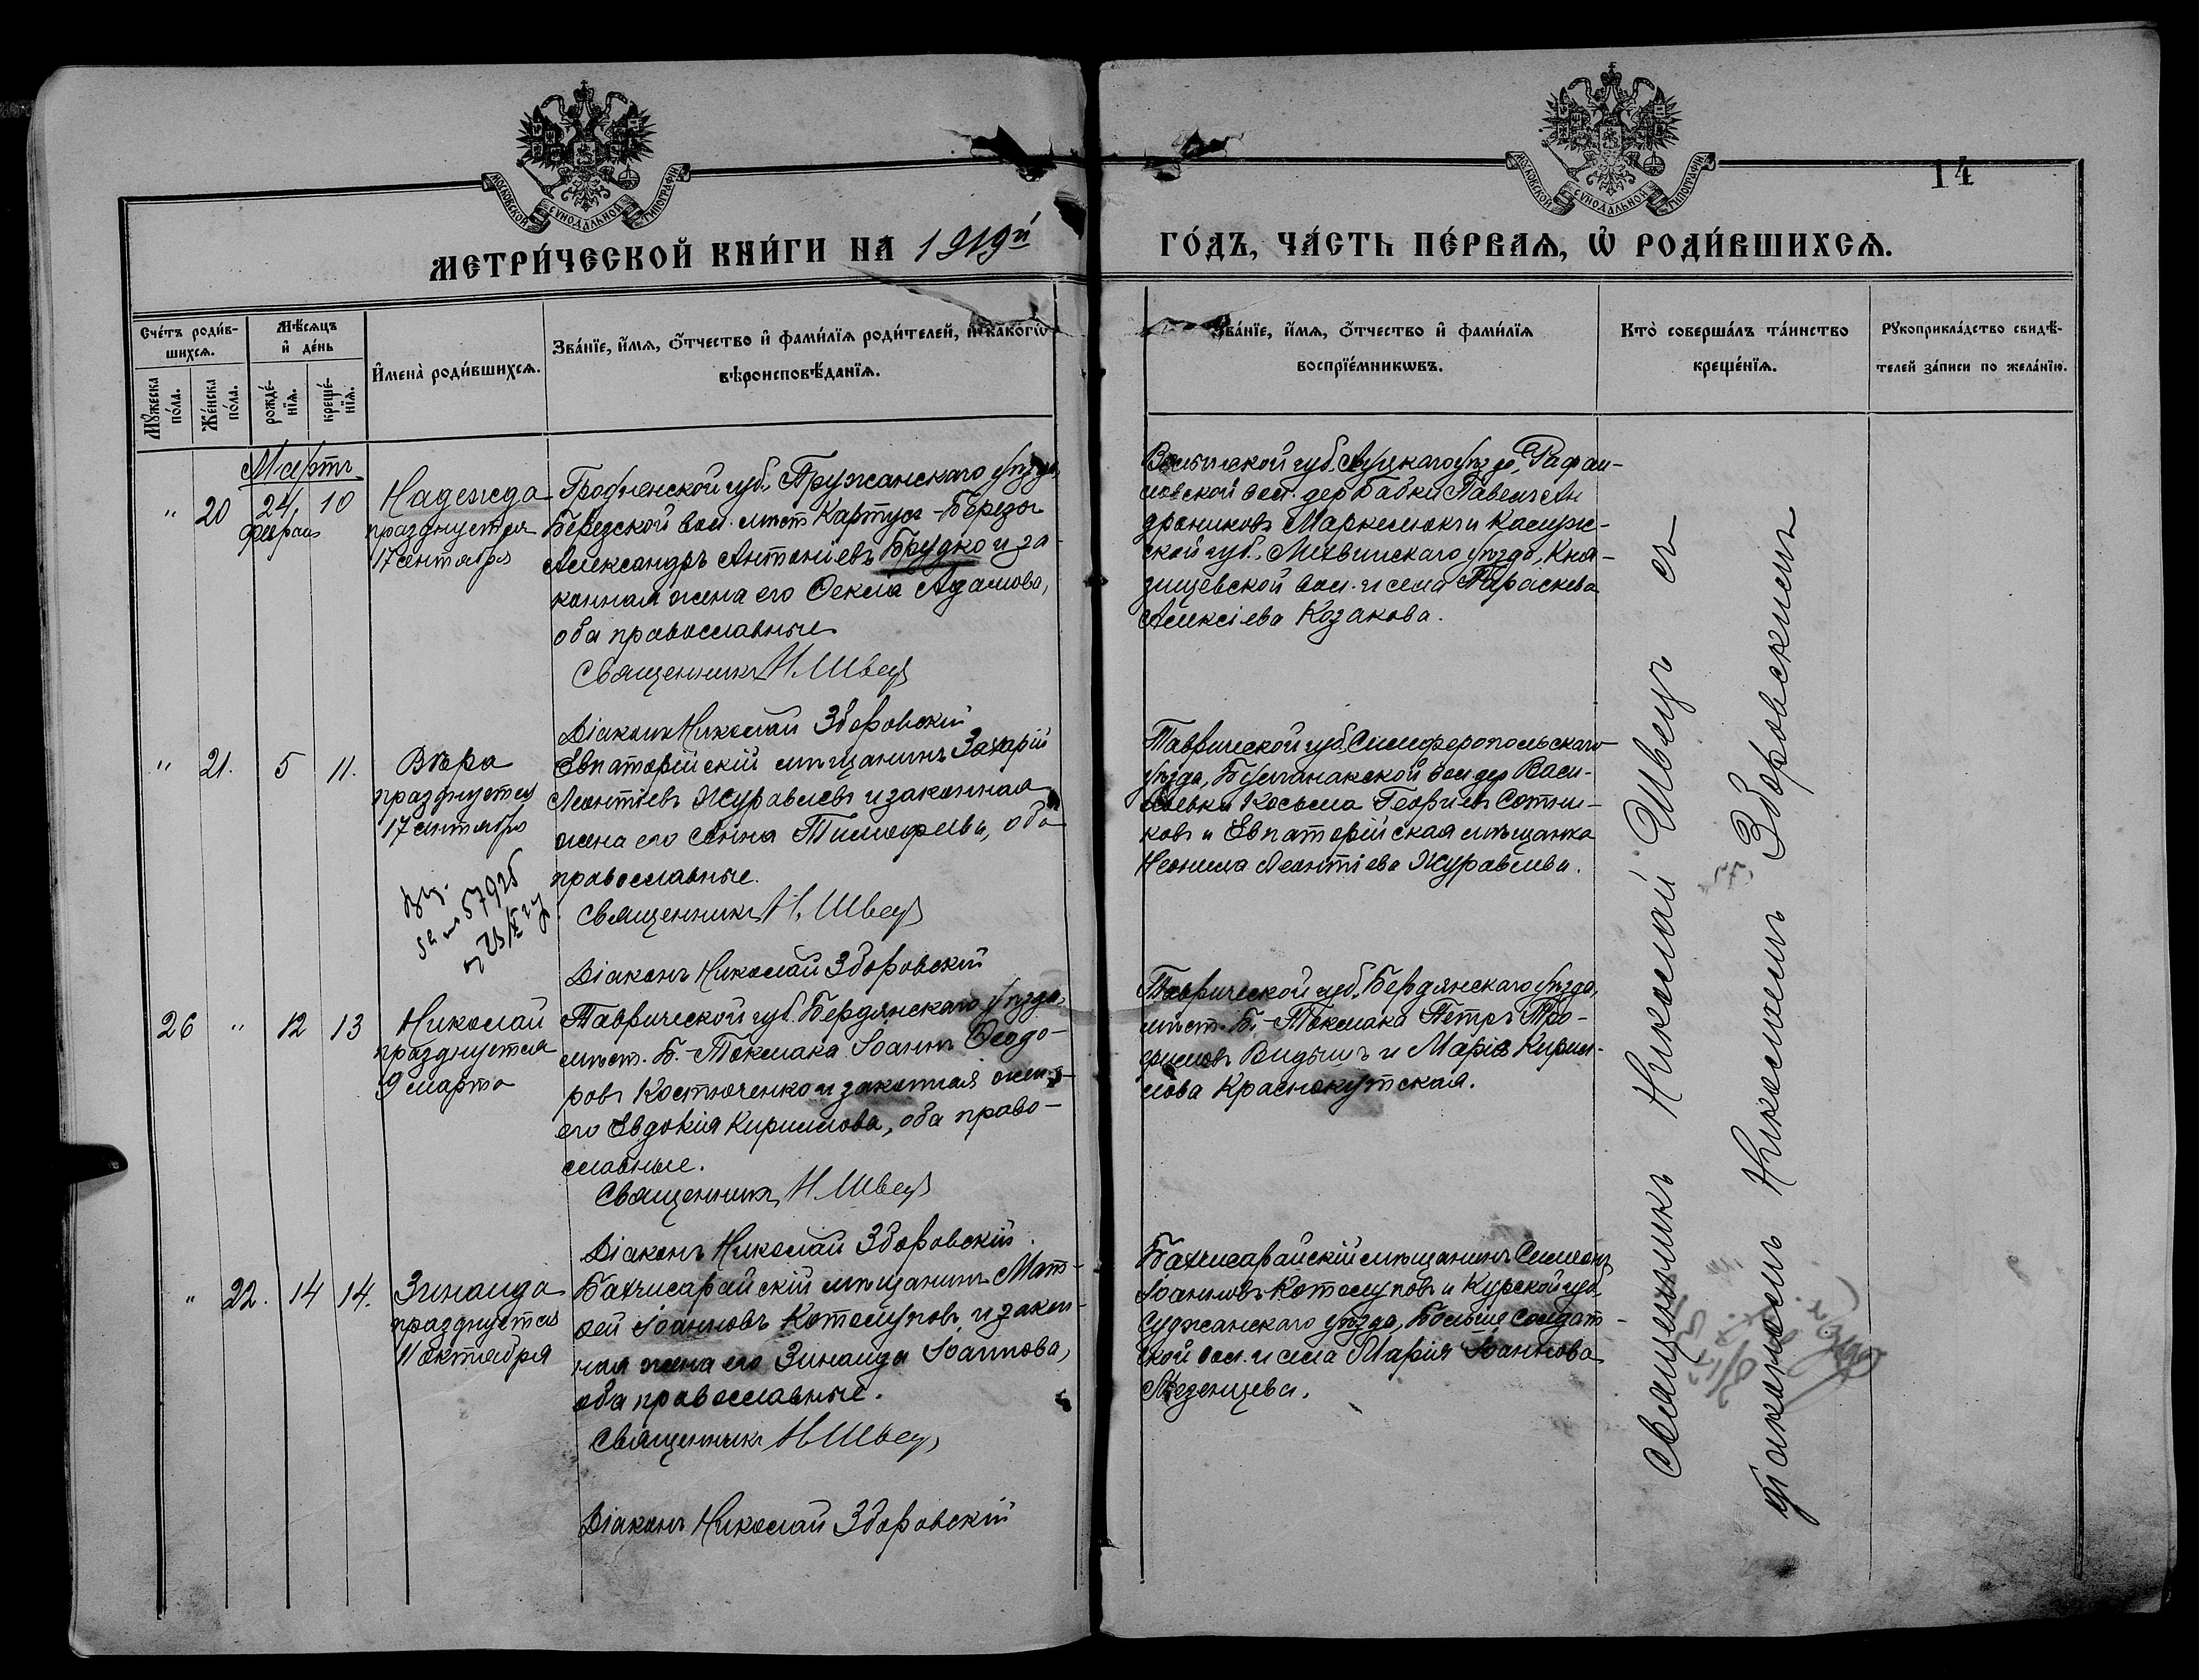 МОСКОВСКОЙ СѴНОДАЛЬНОЙ ТИПОГРАФІИ
МОСКОВСКОЙ СѴНОДАЛЬНОЙ ТИПОГРАФІИ
14
МЕТРИ́ЧЕСКОЙ КНИ́ГИ НА 1919й
ГО́ДЪ, ЧА́СТЬ ПЕ́РВАѦ, Ѡ҆ РОДИ́ВШИХСѦ.
Сче́тъ роди́в-
шихсѧ.
Мѣ́сѧцъ
и҆ де́нь
Мꙋ́жеска
по́ла.
Же́нска
по́ла.
рожде́-
нїѧ.
креще́-
нїѧ.
И҆мена̀ роди́вшихсѧ.
Зва́нїе, и҆́мѧ, ѻ҆́тчество и҆ фами́лїѧ роди́телей, и҆ како́гѡ
вѣроисповѣ́данїѧ.
Зва́нїе, и҆́мѧ, ѻ҆́тчество и҆ фами́лїѧ
воспрїе́мникѡвъ.
Кто̀ соверша́лъ та́инство
креще́нїѧ.
Рꙋкоприкла́дство свидѣ́-
телей за́писи по жела́нїю.
Мартъ
" 20 24 10
феврал
Надежда
празднуется
17 сентября
Гродненской губ., Пружанскаго уѣзда,
Березской вол. мѣст. Картуз-Березы
Александръ Антоніевъ Брудко и за-
конная жена его Ѳекла Адамова,
оба православные.
Священникъ Н. Швец
Діаконъ Николай Зборовскій
Волынской губ. Луцкаго уѣзда, Рафал-
овской вол. дер. Бабки Павелъ Ан
дрониковъ Маркелюкъ и Калуж-
ской губ., Мещовскаго уѣзда, Кня-
зищевской вол. и села Параскева
Алексіева Козакова.
" 21. 5 11.
Вѣра
празднуется
17 сентября
Евпаторійскій мѣщанинъ Захарій
Леонтіевъ Журавлевъ и законная
жена его Анна Тимофеева, оба
православные.
Священникъ Н. Швец
Діаконъ Николай Зборовскій
Таврической губ. Симферопольскаго
уѣзда, Булганакской вол. дер. Васи-
льевки Косьма Георгіевъ Сотни-
ковъ и Евпаторійская мѣщанка
Неонила Леонтіева Журавлева.
26 " 12 13
Николай
празднуется
9 марта
Таврической губ. Бердянскаго уѣзда,
мѣст. Б.-Токмака Іоаннъ Ѳеодо-
ровъ Костюченко и законная жена
его Евдокія Кириллова, оба право-
славные.
Священникъ Н. Швец
Діаконъ Николай Зборовскій.
Таврической губ. Бердянскаго уѣзда,
мѣст. Б.-Токмака Петръ Тро-
фимовъ Видишъ и Марія Кирил-
лова Краснокутская.
" 22. 14 14.
Зинаида
празднуется
11 октября
Бахчисарайскій мѣщанинъ Мат-
ѳей Іоанновъ Котолуповъ и закон-
ная жена его Зинаида Іоаннова,
оба православные.
Священникъ Н. Швец
Діаконъ Николай Зборовскій
Бахчисарайскій мѣщанинъ Симеонъ
Іоанновъ Котолуповъ и Курской губ.
Суджанскаго уѣзда, Больше солдат-
ской вол. и села Марія Іоаннова
Священникъ Николай Швецъ съ
діакономъ Николаемъ Зборовскимъ